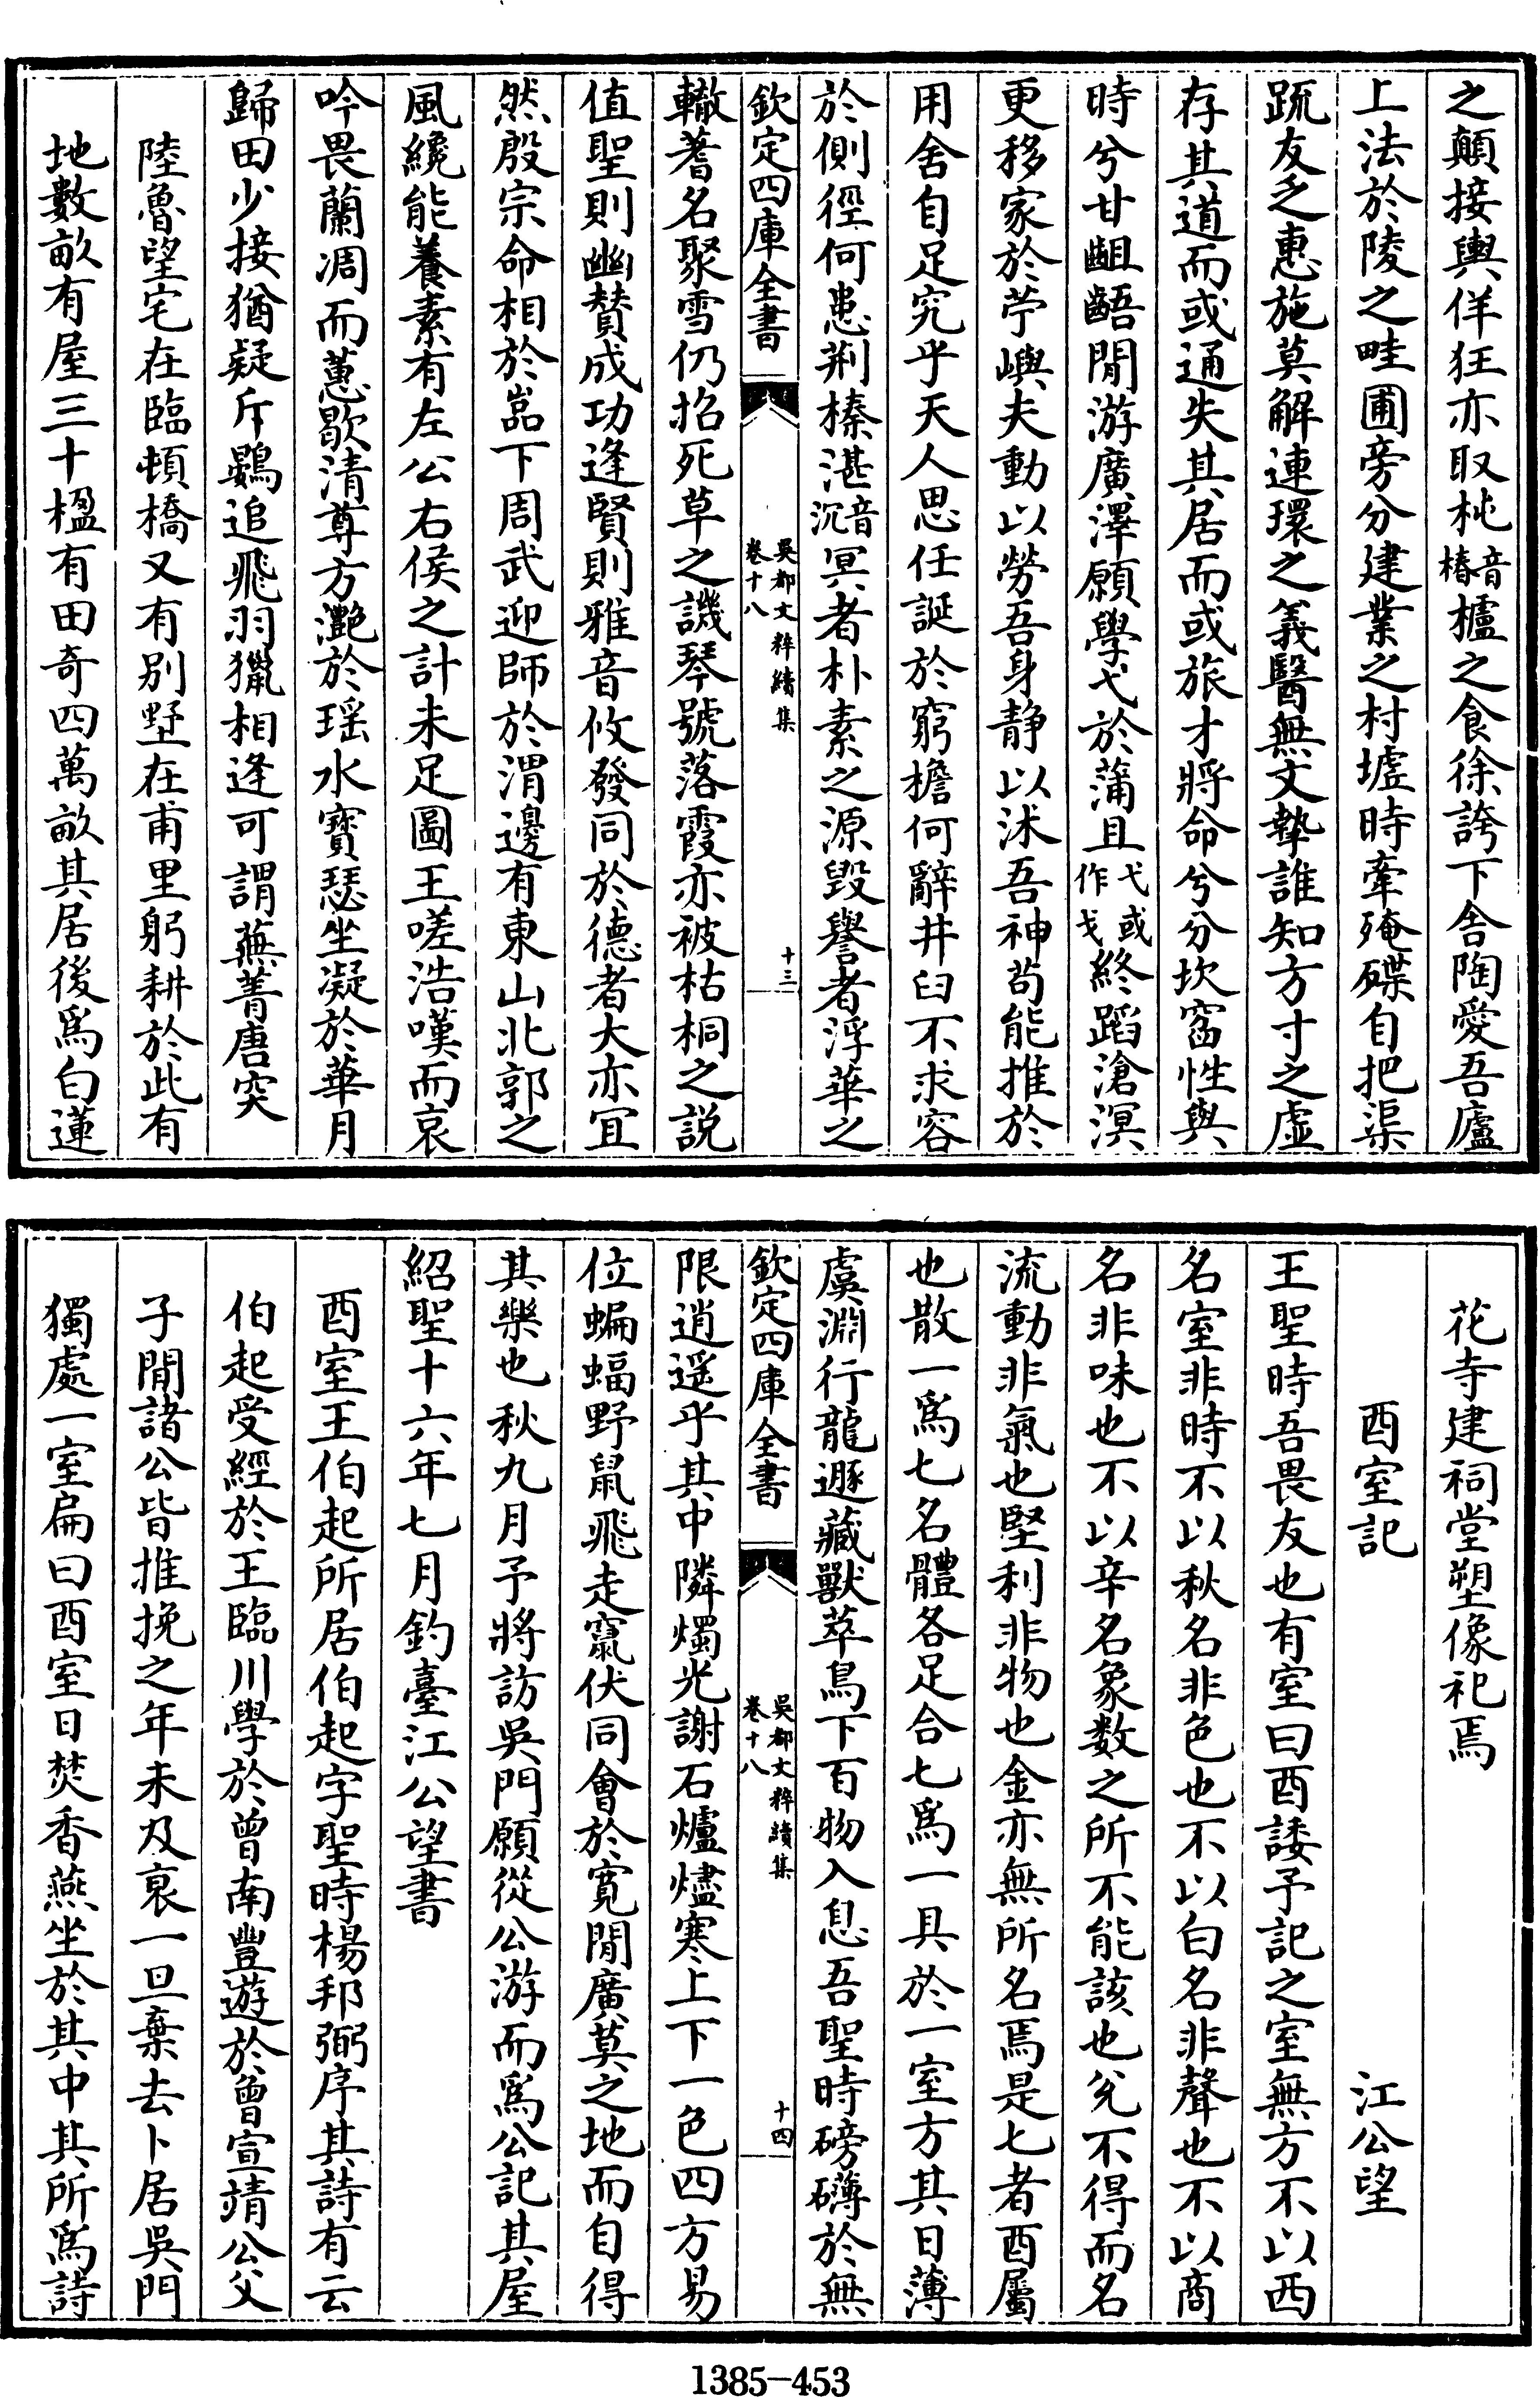 之顛接輿佯狂亦取杶音椿櫨之食徐誇下舎陶愛吾廬
上法於陵之畦圃旁分建業之村墟時牽殗殜自把渠
䟽友乏惠施莫解連環之義醫無文摯誰知方寸之虚
存其道而或通失其居而或旅才將命兮分坎窞性與
時兮甘齟齬閒游廣澤願學弋於蒲且弋或作戈終蹈滄溟
更移家於苧嶼夫動以勞吾身静以沭吾神茍能推於
用舍自足究乎天人思任誕於窮檐何辭井臼不求容
於側徑何患荆榛湛音沉冥者朴素之源毁譽者浮華之
欽定四庫全書
吳都文粹續集
卷十八
十三
轍蓍名聚雪仍招死草之譏琴號落霞亦被枯桐之説
值聖則幽賛成功逢賢則雅音攸發同於德者大亦宜
然殷宗命相於嵓下周武迎師於渭邊有東山北郭之
風纔能養素有左公右侯之計未足圖王嗟浩嘆而哀
吟畏蘭凋而蕙歇清尊方灔於瑶水寳瑟坐凝於華月
歸田少接猶疑斥鷃追飛羽獵相逢可謂蕪菁唐突
陸魯望宅在臨頓橋又有别墅在甫里躬耕於此有
地數畝有屋三十楹有田奇四萬畝其居後爲白蓮
花寺建祠堂塑像祀焉
酉室記 江公望
王聖時吾畏友也有室曰酉諉予記之室無方不以西
名室非時不以秋名非色也不以白名非聲也不以商
名非味也不以辛名象數之所不能該也兊不得而名
流動非氣也堅利非物也金亦無所名焉是七者酉屬
也散一爲七名體各足合七爲一具於一室方其日薄
虞淵行龍遯藏獸萃鳥下百物入息吾聖時磅礴於無
欽定四庫全書
吳都文粹續集
卷十八
十四
限逍遥乎其中隣燭光謝石爐燼寒上下一色四方易
位蝙蝠野鼠飛走竄伏同會於寛閒廣莫之地而自得
其樂也秋九月予將訪吳門願從公游而爲公記其屋
紹聖十六年七月釣臺江公望書
酉室王伯起所居伯起字聖時楊邦弼序其詩有云
伯起受經於王臨川學於曾南豐遊於曾宣靖公父
子間諸公皆推挽之年未及衰一旦棄去卜居吳門
獨處一室扁曰酉室日焚香燕坐於其中其所爲詩
1385-453